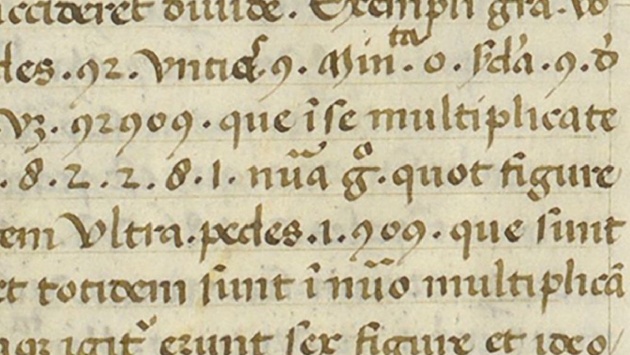 accideret diuide. Exempli gr̃a.
des .92. Vntiaȩ .9. Min^ta. 0. scd̃a. 9.
Vꝫ. 92909. que ĩ se multiplicate
. 8. 2. 2. 8. 1. nũa g̊. quot figure
em Vltra. pedes. 1. 909. que sunt
et totidem sunt ĩ nũo multiplicã
igit̃ erunt sex figure et ideo